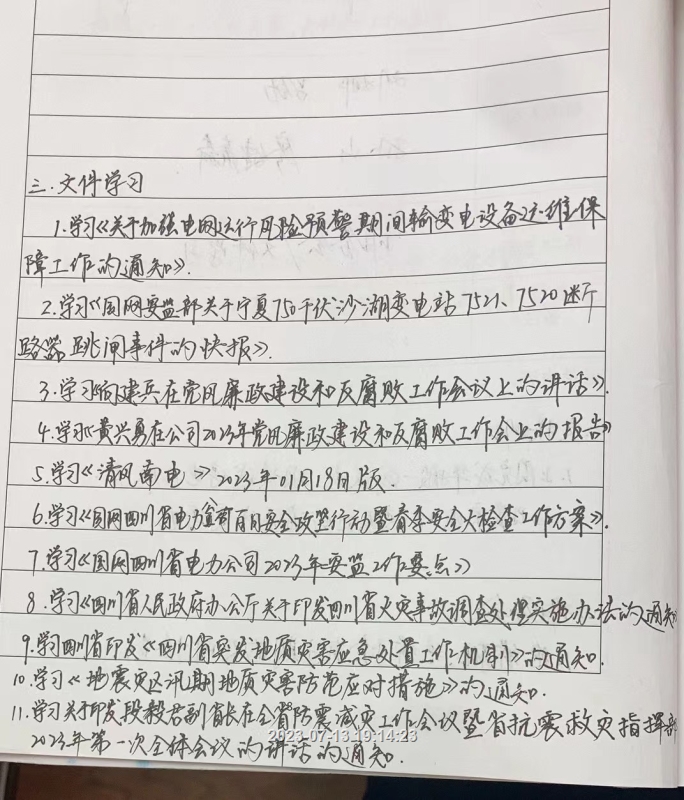 三.文件学习
1.学习《关于加强电网运行风险预警期间输变电设备运维保
障工作的通知》.
2.学习《国网安监部关于宁夏750千伏沙湖变电站7521、7520断
路器跳闸事件的快报》.
3.学习《向建兵在党风廉政建设和反腐败工作会议上的讲话》.
4.学习《黄兴勇在公司2023年党风廉政建设和反腐败工作会上的报告》
5.学习《清风南电》2023年01月18日版.
6.学习《国网四川省电力公司百日安全攻坚行动暨春季安全大检查工作方案》.
7.学习《国网四川省电力公司2023年安监工作要点》
8.学习《四川省人民政府办公厅关于印发四川省火灾事故调查处理实施办法的通知
9.学习四川省印发《四川省突发地质灾害应急处置工作机制》的通知.
10.学习《地震灾区汛期地质灾害防范应对措施》的通知.
11.学习关于印发段毅君副省长在全省防震减灾工作会议暨省抗震救灾指挥部
2023年第一次全体会议的讲话的通知.
2023-07-13 19:14:23